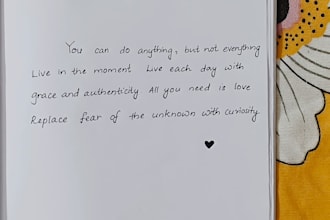 You can do anything, but not everything
Live in the moment Live each day with
grace and authenticity All you need is love
Replace fear of the unknown with curiosity